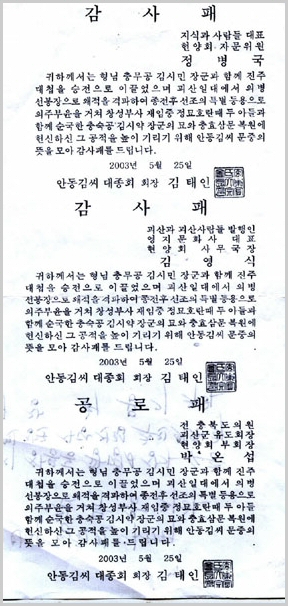 감 사 패
지식과 사람들 대표
현양회 자문위원
정 병 국
귀하께서는 형님 충무공 김시민 장군과 함께 진주
대첩을 승전으로 이끌었으며 괴산일대에서 의병
선봉장으로 왜적을 격파하여 종전후 선조의 특별등용으로
의주부윤을 거쳐 창성부사 재임중 정묘호란때 두 아들과
함께 순국한 충숙공 김시약 장군의 묘와 충효삼문 복원에
헌신하신 그 공적을 높이 기리기 위해 안동김씨 문중의
뜻을 모아 감사패를 드립니다.
2003년 5월 25일
안동김씨 대종회 회장 김 태 인
감 사 패
괴산과 괴산사람들 발행인
영지문화사 대표
현양회 사무국장
김 영 식
귀하께서는 형님 충무공 김시민 장군과 함께 진주
대첩을 승전으로 이끌었으며 괴산일대에서 의병
선봉장으로 왜적을 격파하여 종전후 선조의 특별등용으로
의주부윤을 거쳐 창성부사 재임중 정묘호란때 두 아들과
함께 순국한 충숙공 김시약 장군의 묘와 충효삼문 복원에
헌신하신 그 공적을 높이 기리기 위해 안동김씨 문중의
뜻을 모아 감사패를 드립니다.
2003년 5월 25일
안동김씨 대종회 회장 김 태 인
공 로 패
전 충북도의원
괴산군 유도회장
현양회 부회장
박 온 섭
귀하께서는 형님 충무공 김시민 장군과 함께 진주
대첩을 승전으로 이끌었으며 괴산일대에서 의병
선봉장으로 왜적을 격파하여 종전후 선조의 특별등용으로
의주부윤을 거쳐 창성부사 재임중 정묘호란때 두 아들과
함께 순국한 충숙공 김시약 장군의 묘와 충효삼문 복원에
헌신하신 그 공적을 높이 기리기 위해 안동김씨 문중의
뜻을 모아 감사패를 드립니다.
2003년 5월 25일
안동김씨 대종회 회장 김 태 인